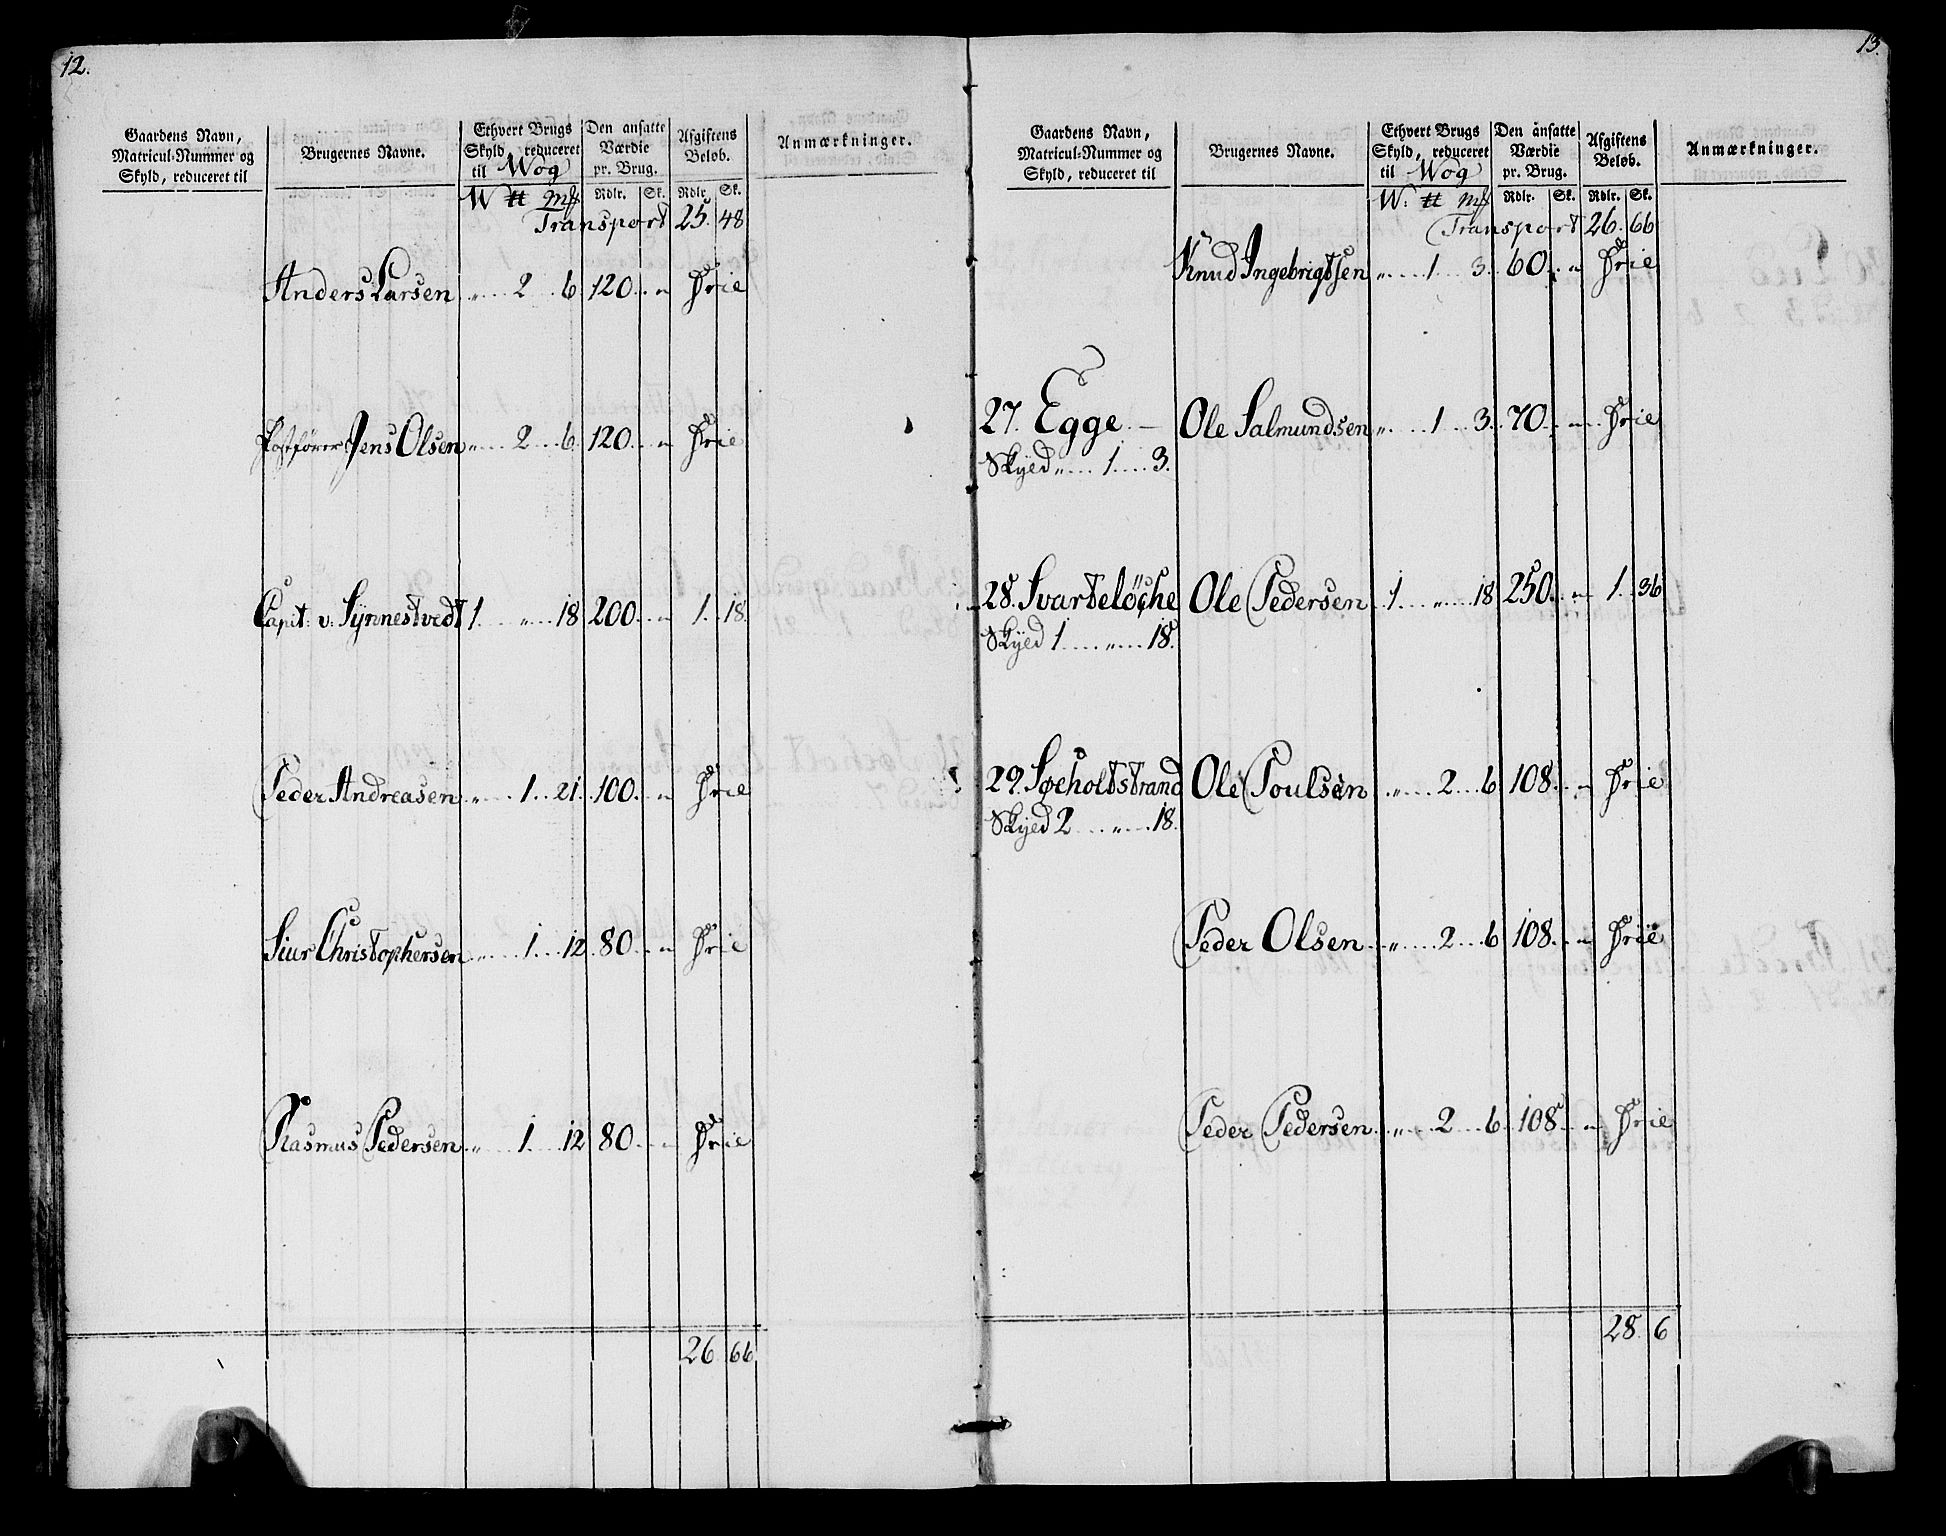 12.
Gaardens Navn, Matricul-Nummer og Skyld, reduceret til
Brugernes Navne.
Ethvert Brugs Skyld reduceret til Wog
Den ansatte Værdie pr. Brug.
Afgiftens Beløb.
Anmærkninger.
W ℔ mk Rdlr. Sk. Rdlr. Sk.
Transport 25. 48
Anders Larsen „ 2 6 120 „ Frie
Postfører Jens Olsen „ 2 6 120 „ Frie
Capit. v. Synnestvedt 1 „ 18 200 „ 1. 18
Peder Andreasen „ 1 21 100 „ Frie
Siur Christophersen „ 1 12 80 „ Frie
Rasmus Pedersen „ 1 12 80 „ Frie
26 66
13.
Gaardens Navn, Matricul-Nummer og Skyld, reduceret til
Brugernes Navne.
Ethvert Brugs Skyld, reduceret til Wog
Den ansatte Værdie pr. Brug.
Afgiftens Beløb.
Anmærkninger.
W. ℔ mk Rdlr. Sk. Rdlr. Sk.
Transport 26. 66
Knud Ingebrigtsen „ 1 3 60 „ Frie
27. Egge Ole Salmundsen „ 1 3 70 „ Frie
Skyed „ 1 3.
28. Svarteløche Ole Pedersen 1 „ 18 250 „ 1. 36
Skyed 1 „ 18.
29. Søeholtstrand Ole Poulsen „ 2 6 108 „ Frie
Skyed 2 „ 18.
Peder Olsen „ 2 6 108 „ Frie
Peder Pedersen „ 2 6 108 „ Frie
28. 6